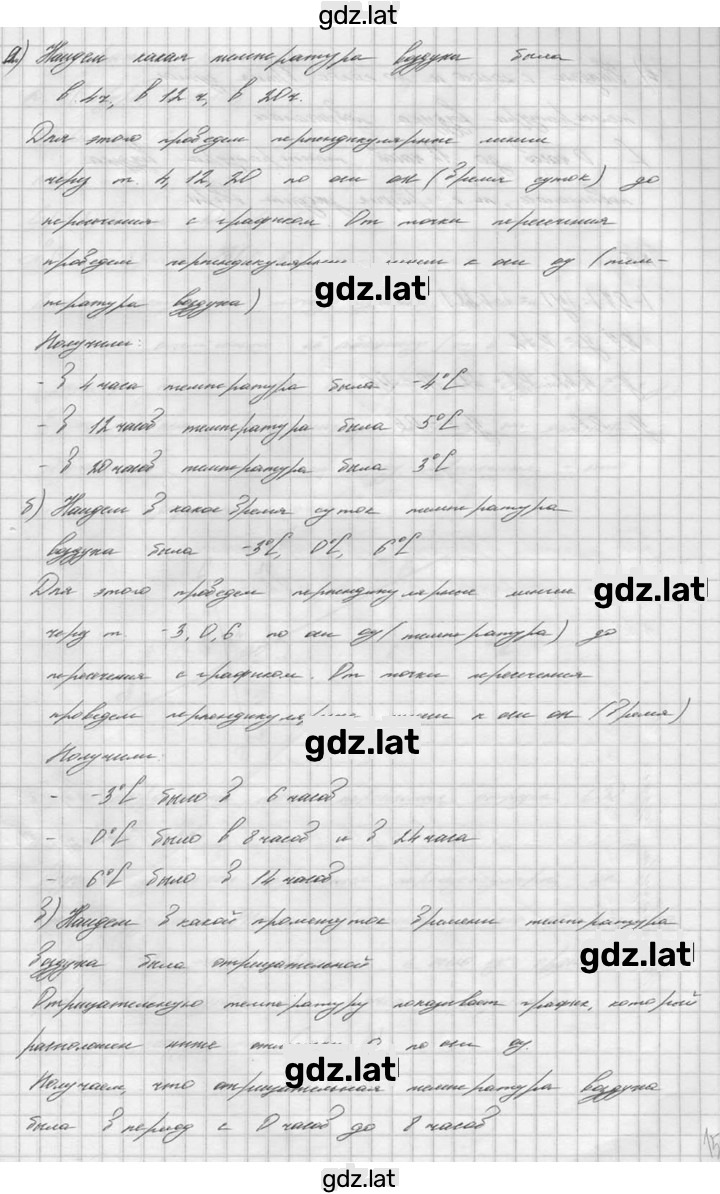 gdz.latl
а) Найдем какая температура воздуха была
в 4ч, в 12 ч, в 20ч.
Для этого проведем перпендикулярные линии
через т. 4, 12, 20 по оси ох (Время суток) до
пересечения с графиком От точки пересечения
проведем перпендикулярные линии к оси оу (тем-
gdz.lat
пература воздуха)
Получили:
- в 4 часа температура была -4°С
- в 12 часов температура была 5°С
- в 20 часов температура была 3°С
б) Найдем в какое время суток температура
воздуха была -3°С, 0°С, 6°С
Для этого проведем перпендикулярные линии
gdz.lat
через т. -3, 0, 6 по оси оу (температура) до
пересечения с графиком. От точки пересечения
проведем перпендикулярные линии к оси ох (Время)
gdz.lat
Получили:
- -3°С было в 6 часов
- 0°С было в 8 часов и в 24 часа
- 6°С было в 14 часов.
в) Найдем в какой промежуток времени температура
воздуха была отрицательной
gdz.lat
Отрицательную температуру показывает график, который
расположен ниже 0 по оси оу.
gdz.lat
Получаем, что отрицательная температура воздуха
была в период с 0 часов до 8 часов
15
gdz.lat